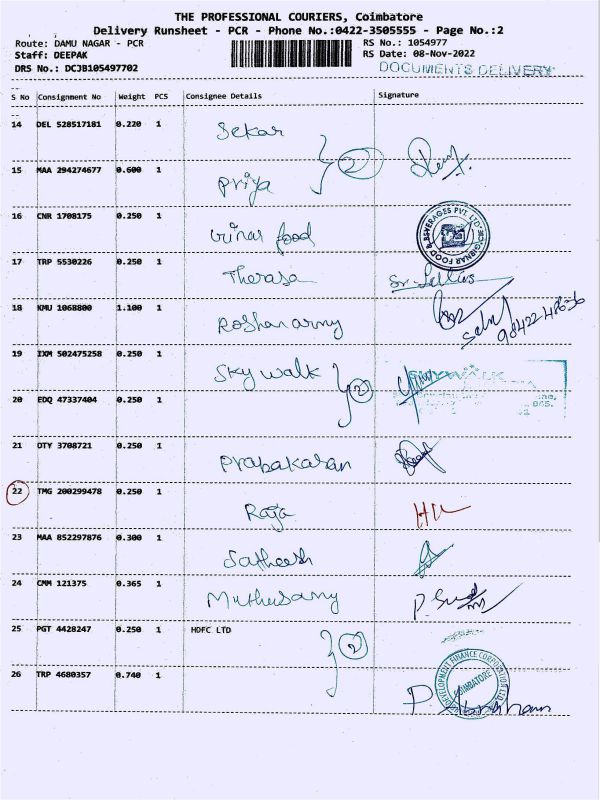 THE PROFESSIONAL COURIERS, Coimbatore
Delivery Runsheet - PCR - Phone No.:0422-3505555 - Page No.:2
Route: DAMU NAGAR - PCR RS No.: 1054977
Staff: DEEPAK RS Date: 08-Nov-2022
DRS No.: DCJB105497702 DOCUMENTS DELIVERY
S No Consignment No Weight PCS Consignee Details Signature
14 DEL 528517181 0.220 1 Sekar
2
15 MAA 294274677 0.600 1 Priya
16 CNR 1708175 0.250 1 Vinar food
FOOD & BEVERAGES PVT. LTD
17 TRP 5530226 0.250 1 Therasa
18 KMU 1068800 1.100 1 Roshan army
98422-48636
19 IXM 502475258 0.250 1 Sky walk SKYWALK
2
20 EDQ 47337404 0.250 1
21 OTY 3708721 0.250 1 Prabakaran
22 TMG 200299478 0.250 1 Raja
23 MAA 852297876 0.300 1 Satheesh
24 CMM 121375 0.365 1 Muthusamy
25 PGT 4428247 0.250 1 HDFC LTD
2
26 TRP 4680357 0.740 1
DEVELOPMENT FINANCE CORPORATION LTD
COIMBATORE